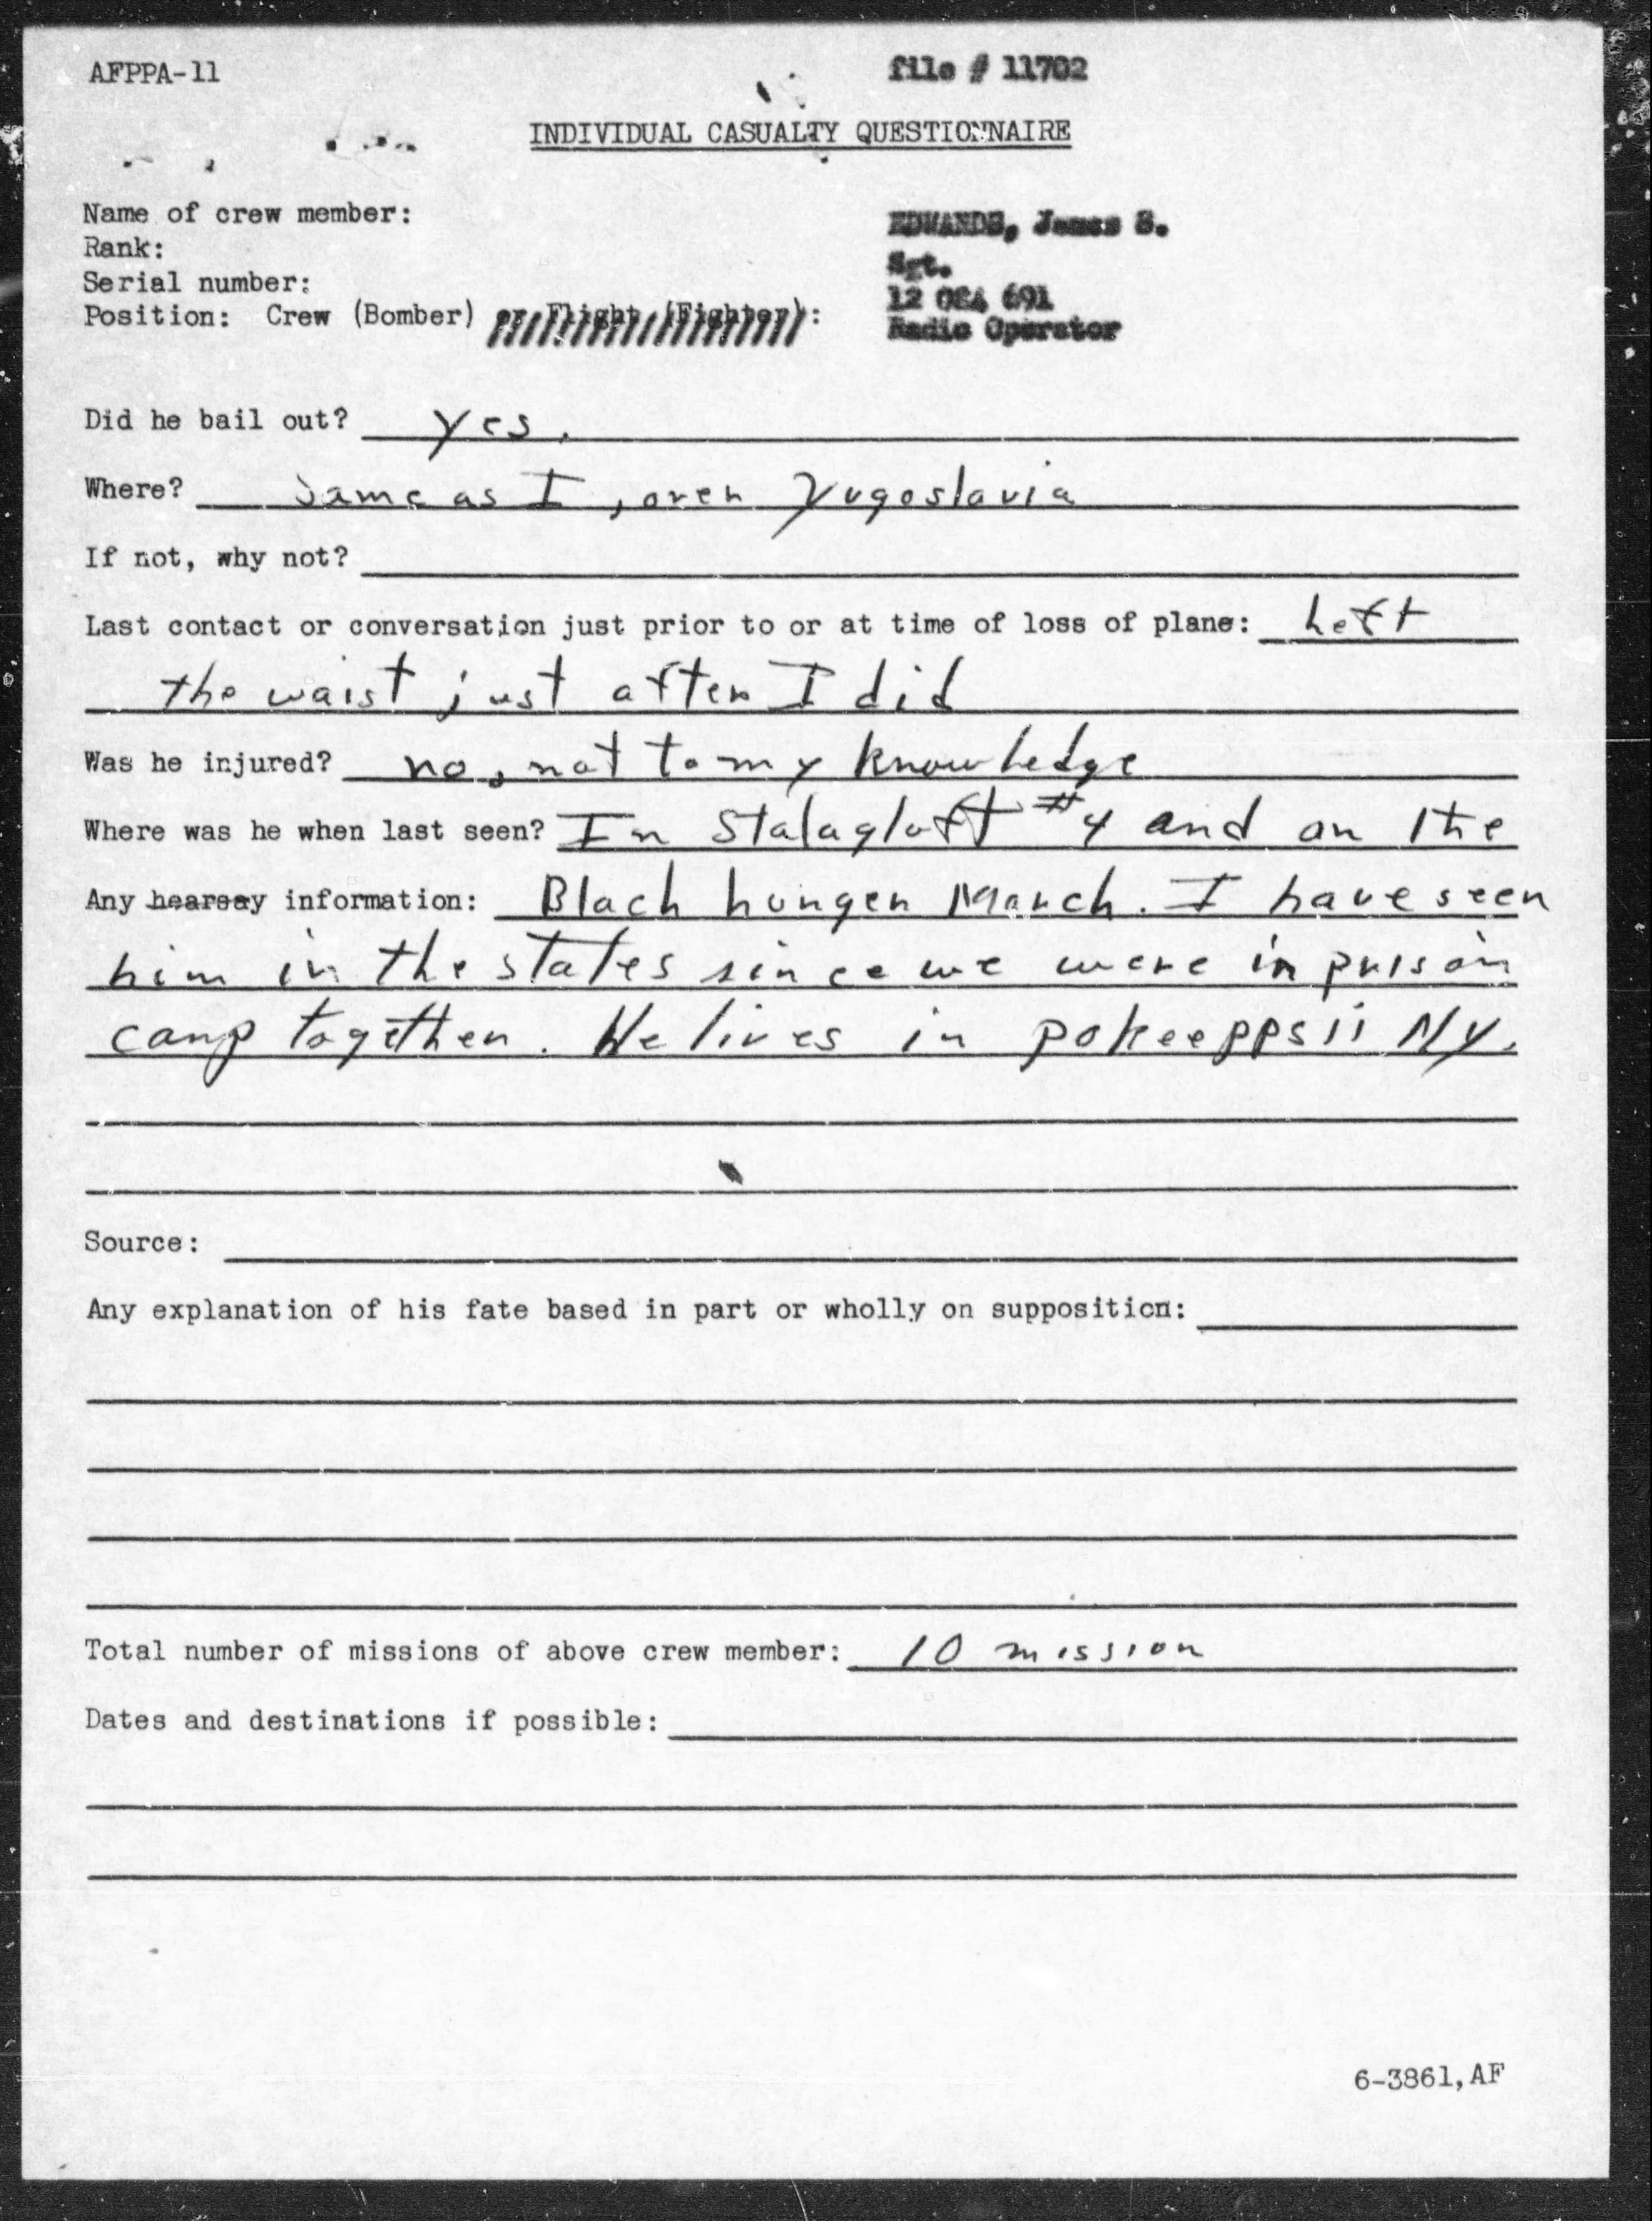 AFPPA-11 file # 11702
INDIVIDUAL CASUALTY QUESTIONNAIRE
Name of crew member: EDWARDS, James S.
Rank: Sgt.
Serial number: 12 084 691
Position: Crew (Bomber) or Flight (Fighter): Radio Operator
Did he bail out? Yes.
Where? Same as I, over Yugoslavia
If not, why not?
Last contact or conversation just prior to or at time of loss of plane: Left
the waist just after I did
Was he injured? no, not to my knowledge
Where was he when last seen? In Stalagluft #4 and on the
Any hearsay information: Black hunger March. I have seen
him in the states since we were in prison
camp together. He lives in pokeeppsii NY.
Source:
Any explanation of his fate based in part or wholly on supposition:
Total number of missions of above crew member: 10 mission
Dates and destinations if possible:
6-3861,AF